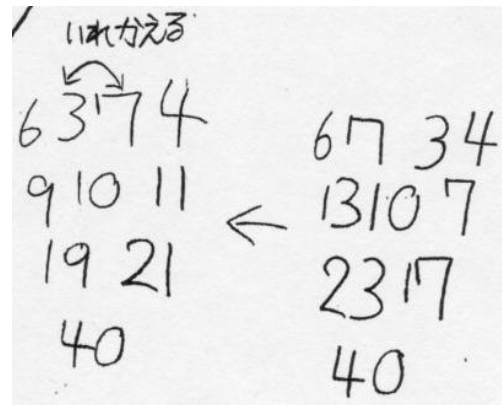 いれかえる
6 3 7 4
9 10 11
19 21
40
←
6 7 3 4
13 10 7
23 17
40